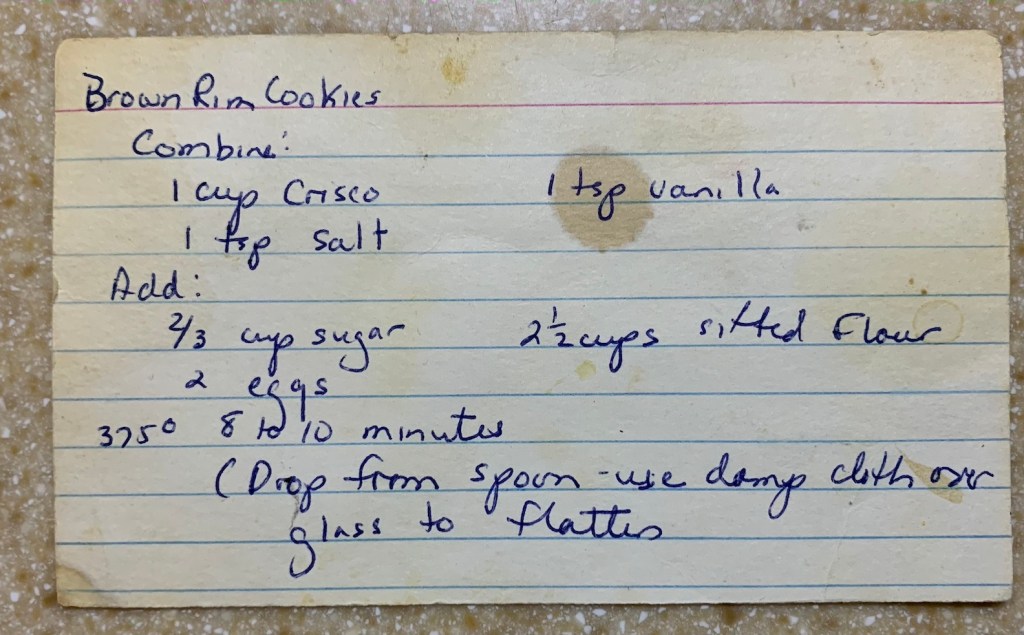 Brown Rim Cookies
Combine:
1 cup Crisco 1 tsp vanilla
1 tsp salt
Add:
2/3 cup sugar 2 1/2 cups sifted Flour
2 eggs
375° 8 to 10 minutes
(Drop from spoon - use damp cloth over
glass to flatten